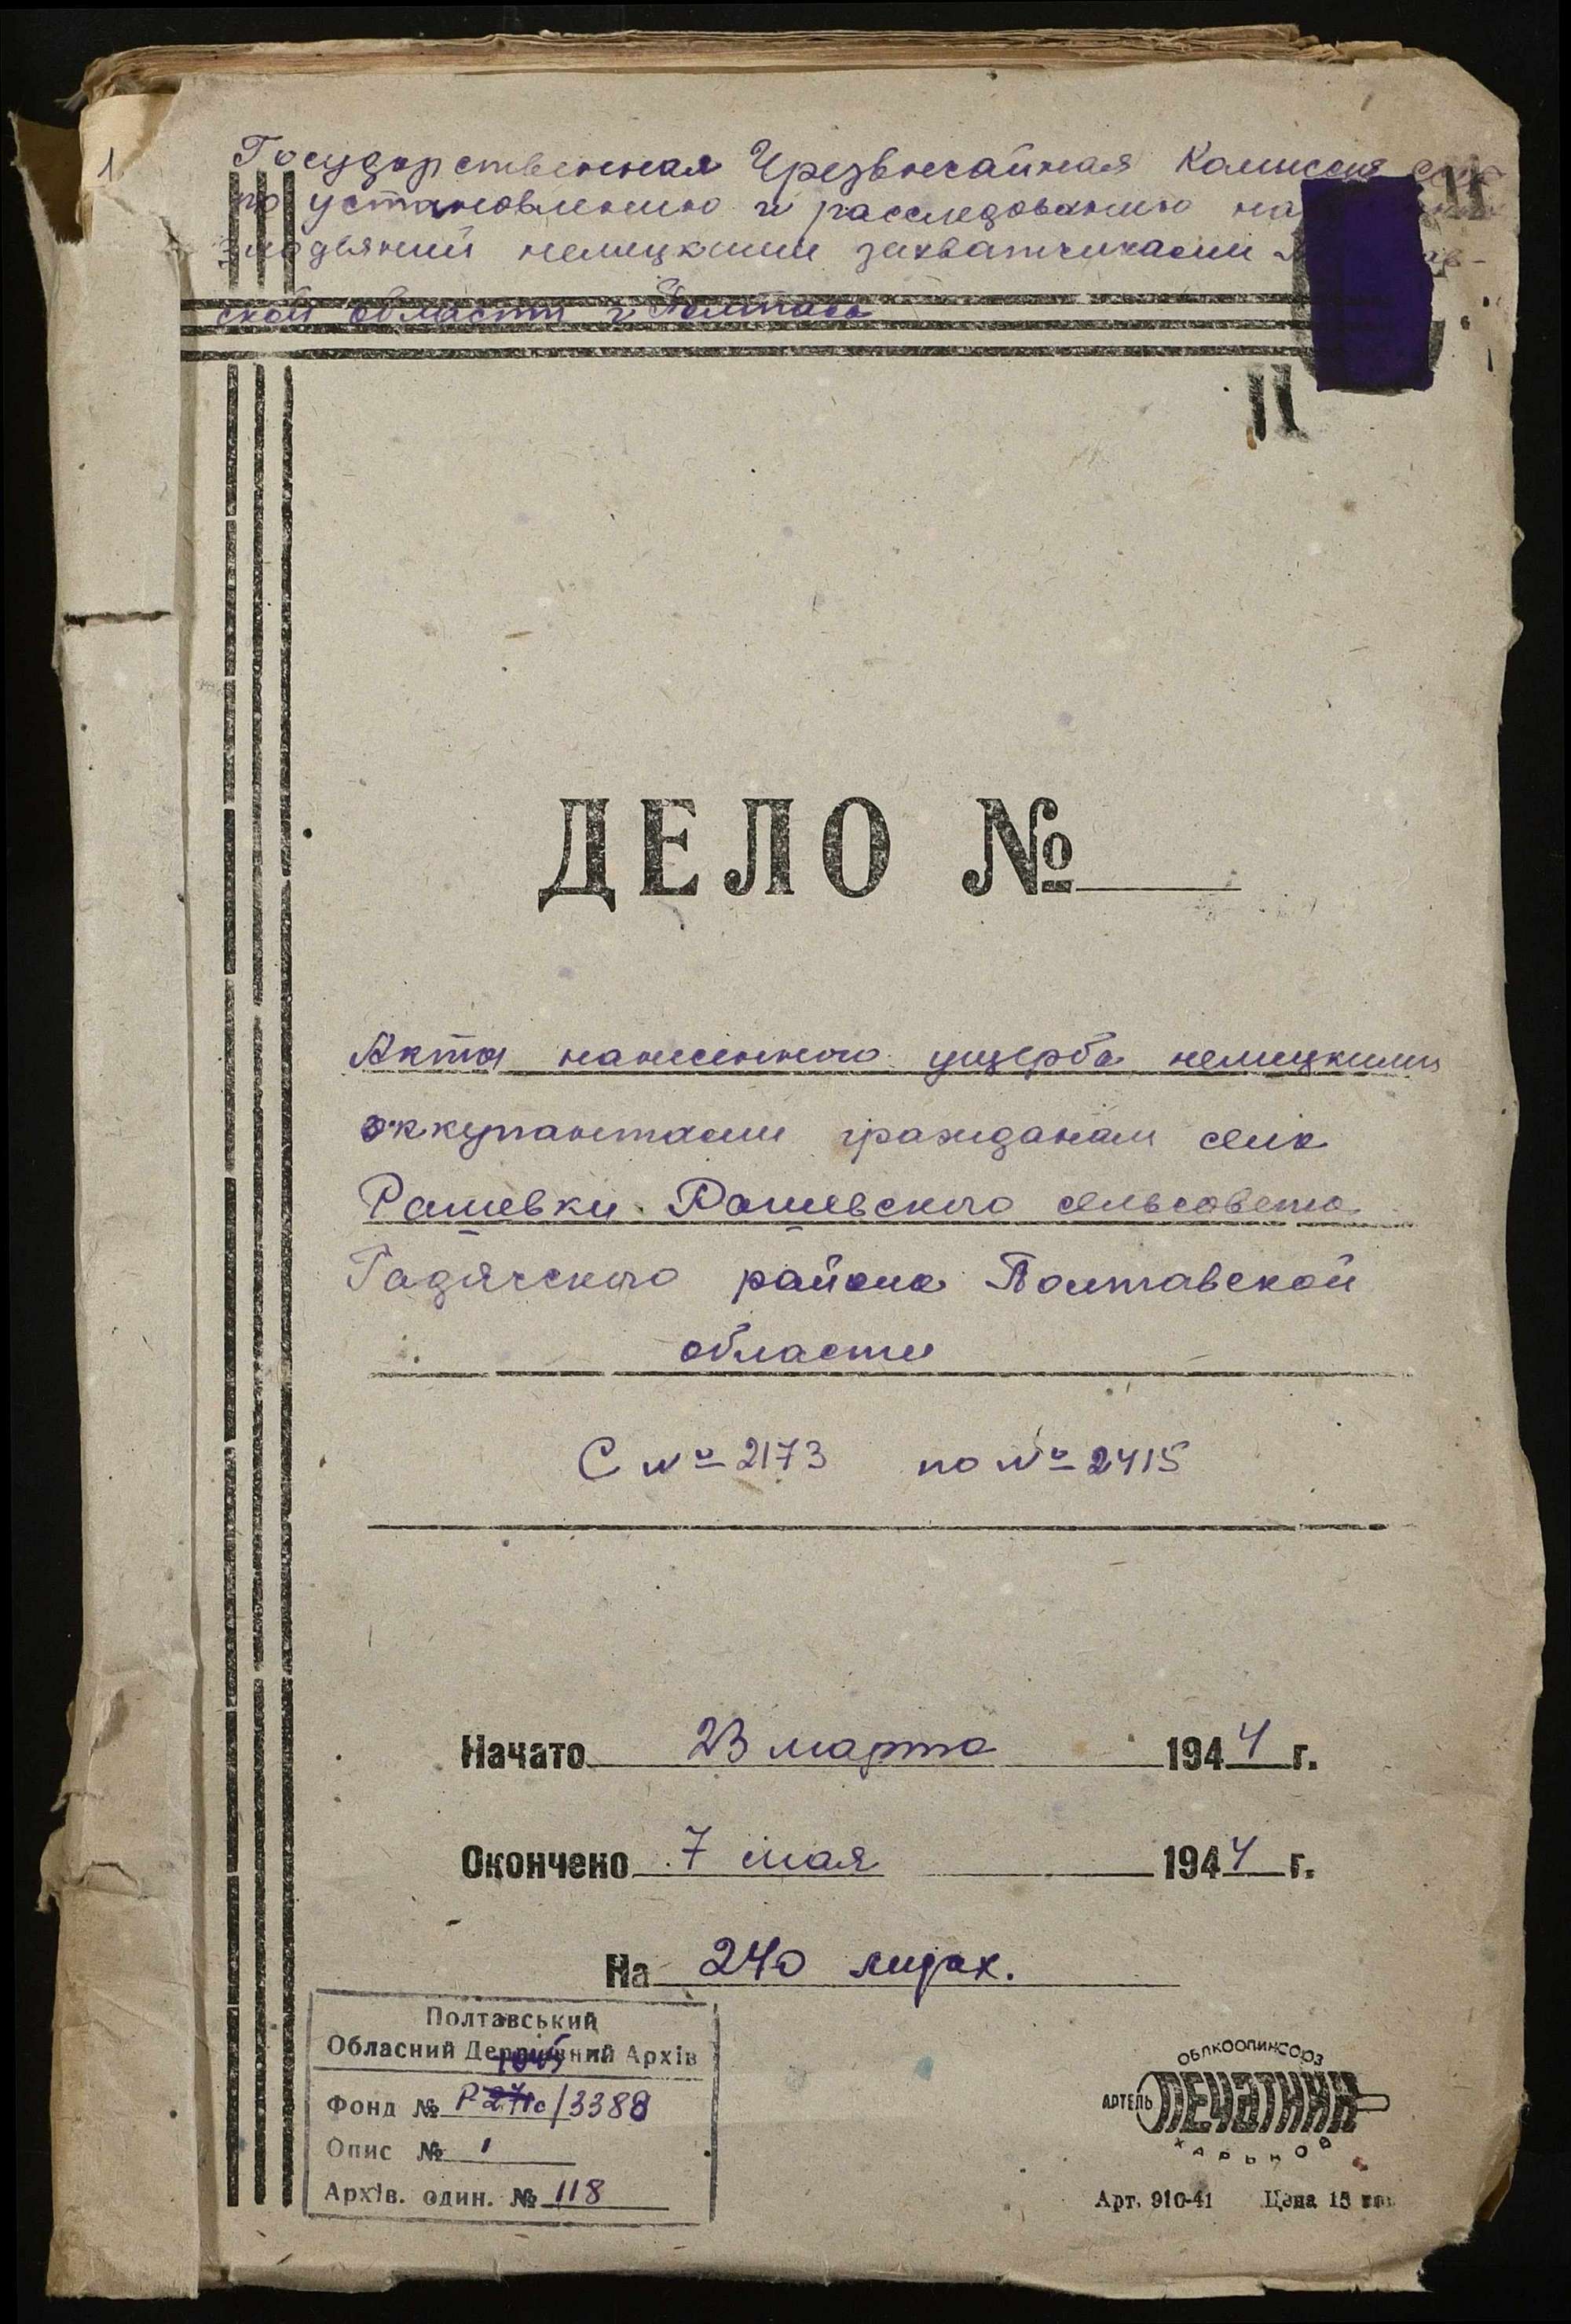 1
Государственная Чрезвычайная Комиссия
по установлению и расследованию
злодеяний немецкими захватчиками
ской области г. Полтава
ДЕЛО №
Акты нанесенного ущерба немецкими
оккупантами гражданам села
Рашевки Рашевского сельсовета
Гадячского района Полтавской
области
С № 2173 по № 2415
Начато 23 марта 1944 г.
Окончено 7 мая 1944 г.
На 240 лидах.
Полтавський
Обласний Державний Архів
Фонд № Р /3388
Опис № 1
Архів. один. № 118
ОБЛКООПИНСОЮЗ
АРТЕЛЬ ПЕЧАТНИК
ХАРЬКОВ
Арт. 910-41 Цена 15 коп.